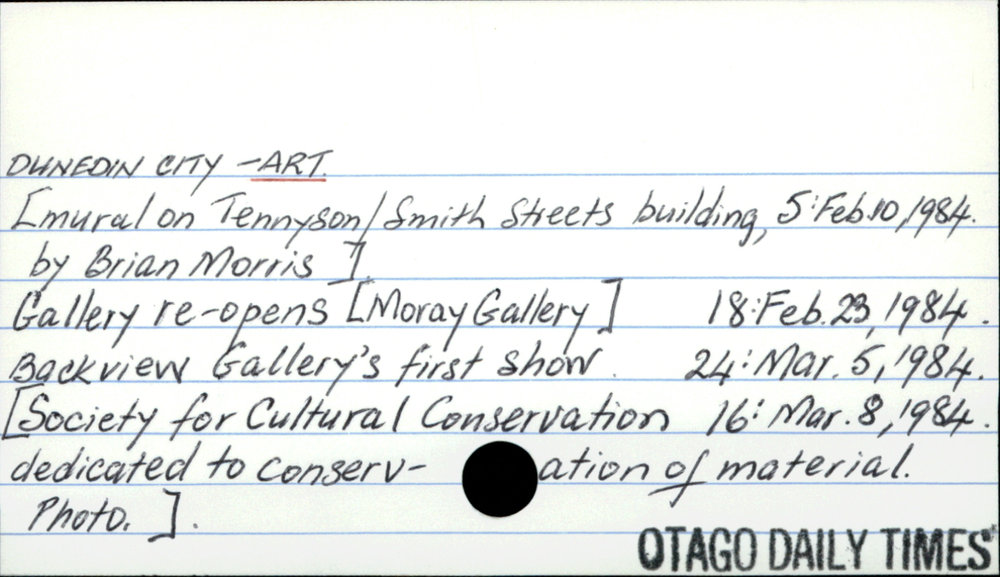 DUNEDIN CITY - ART.
[mural on Tennyson/Smith Streets building, 5:Feb.10,1984.
by Brian Morris ].
Gallery re-opens [Moray Gallery] 18:Feb.23,1984.
Backview Gallery's first show. 24:Mar.5,1984.
[Society for Cultural Conservation 16:Mar.8,1984.
dedicated to conserv- ation of material.
Photo. ].
OTAGO DAILY TIMES